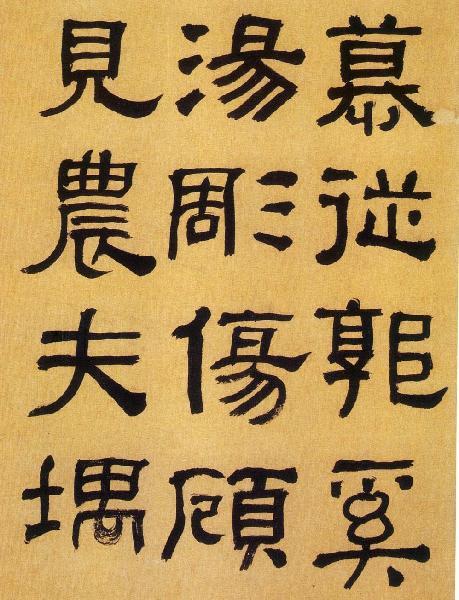 慕従郭奚
湯彫傷頋
見農夫堣